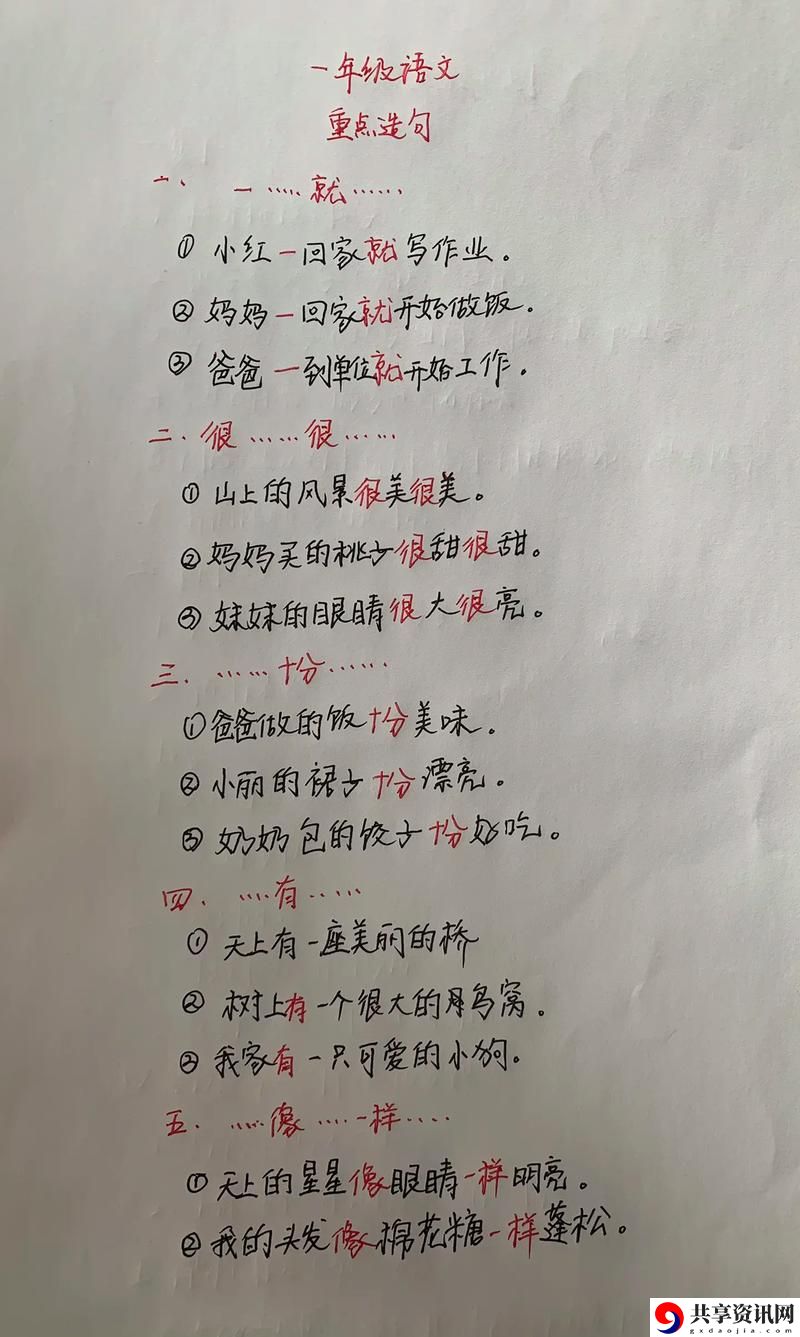 一年级语文
重点造句
一、 一……就……
① 小红一回家就写作业。
② 妈妈一回家就开始做饭。
③ 爸爸一到单位就开始工作。
二. 很……很……
① 山上的风景很美很美。
② 妈妈买的桃子很甜很甜。
③ 妹妹的眼睛很大很亮。
三. ……十分……
① 爸爸做的饭十分美味。
② 小丽的裙子十分漂亮。
③ 奶奶包的饺子十分好吃。
四. ……有……
① 天上有一座美丽的桥
② 树上有一个很大的鸟窝。
③ 我家有一只可爱的小狗。
五. ……像……一样……
① 天上的星星像眼睛一样明亮。
② 我的头发像棉花糖一样蓬松。
共享资讯网
gxdaojia.com